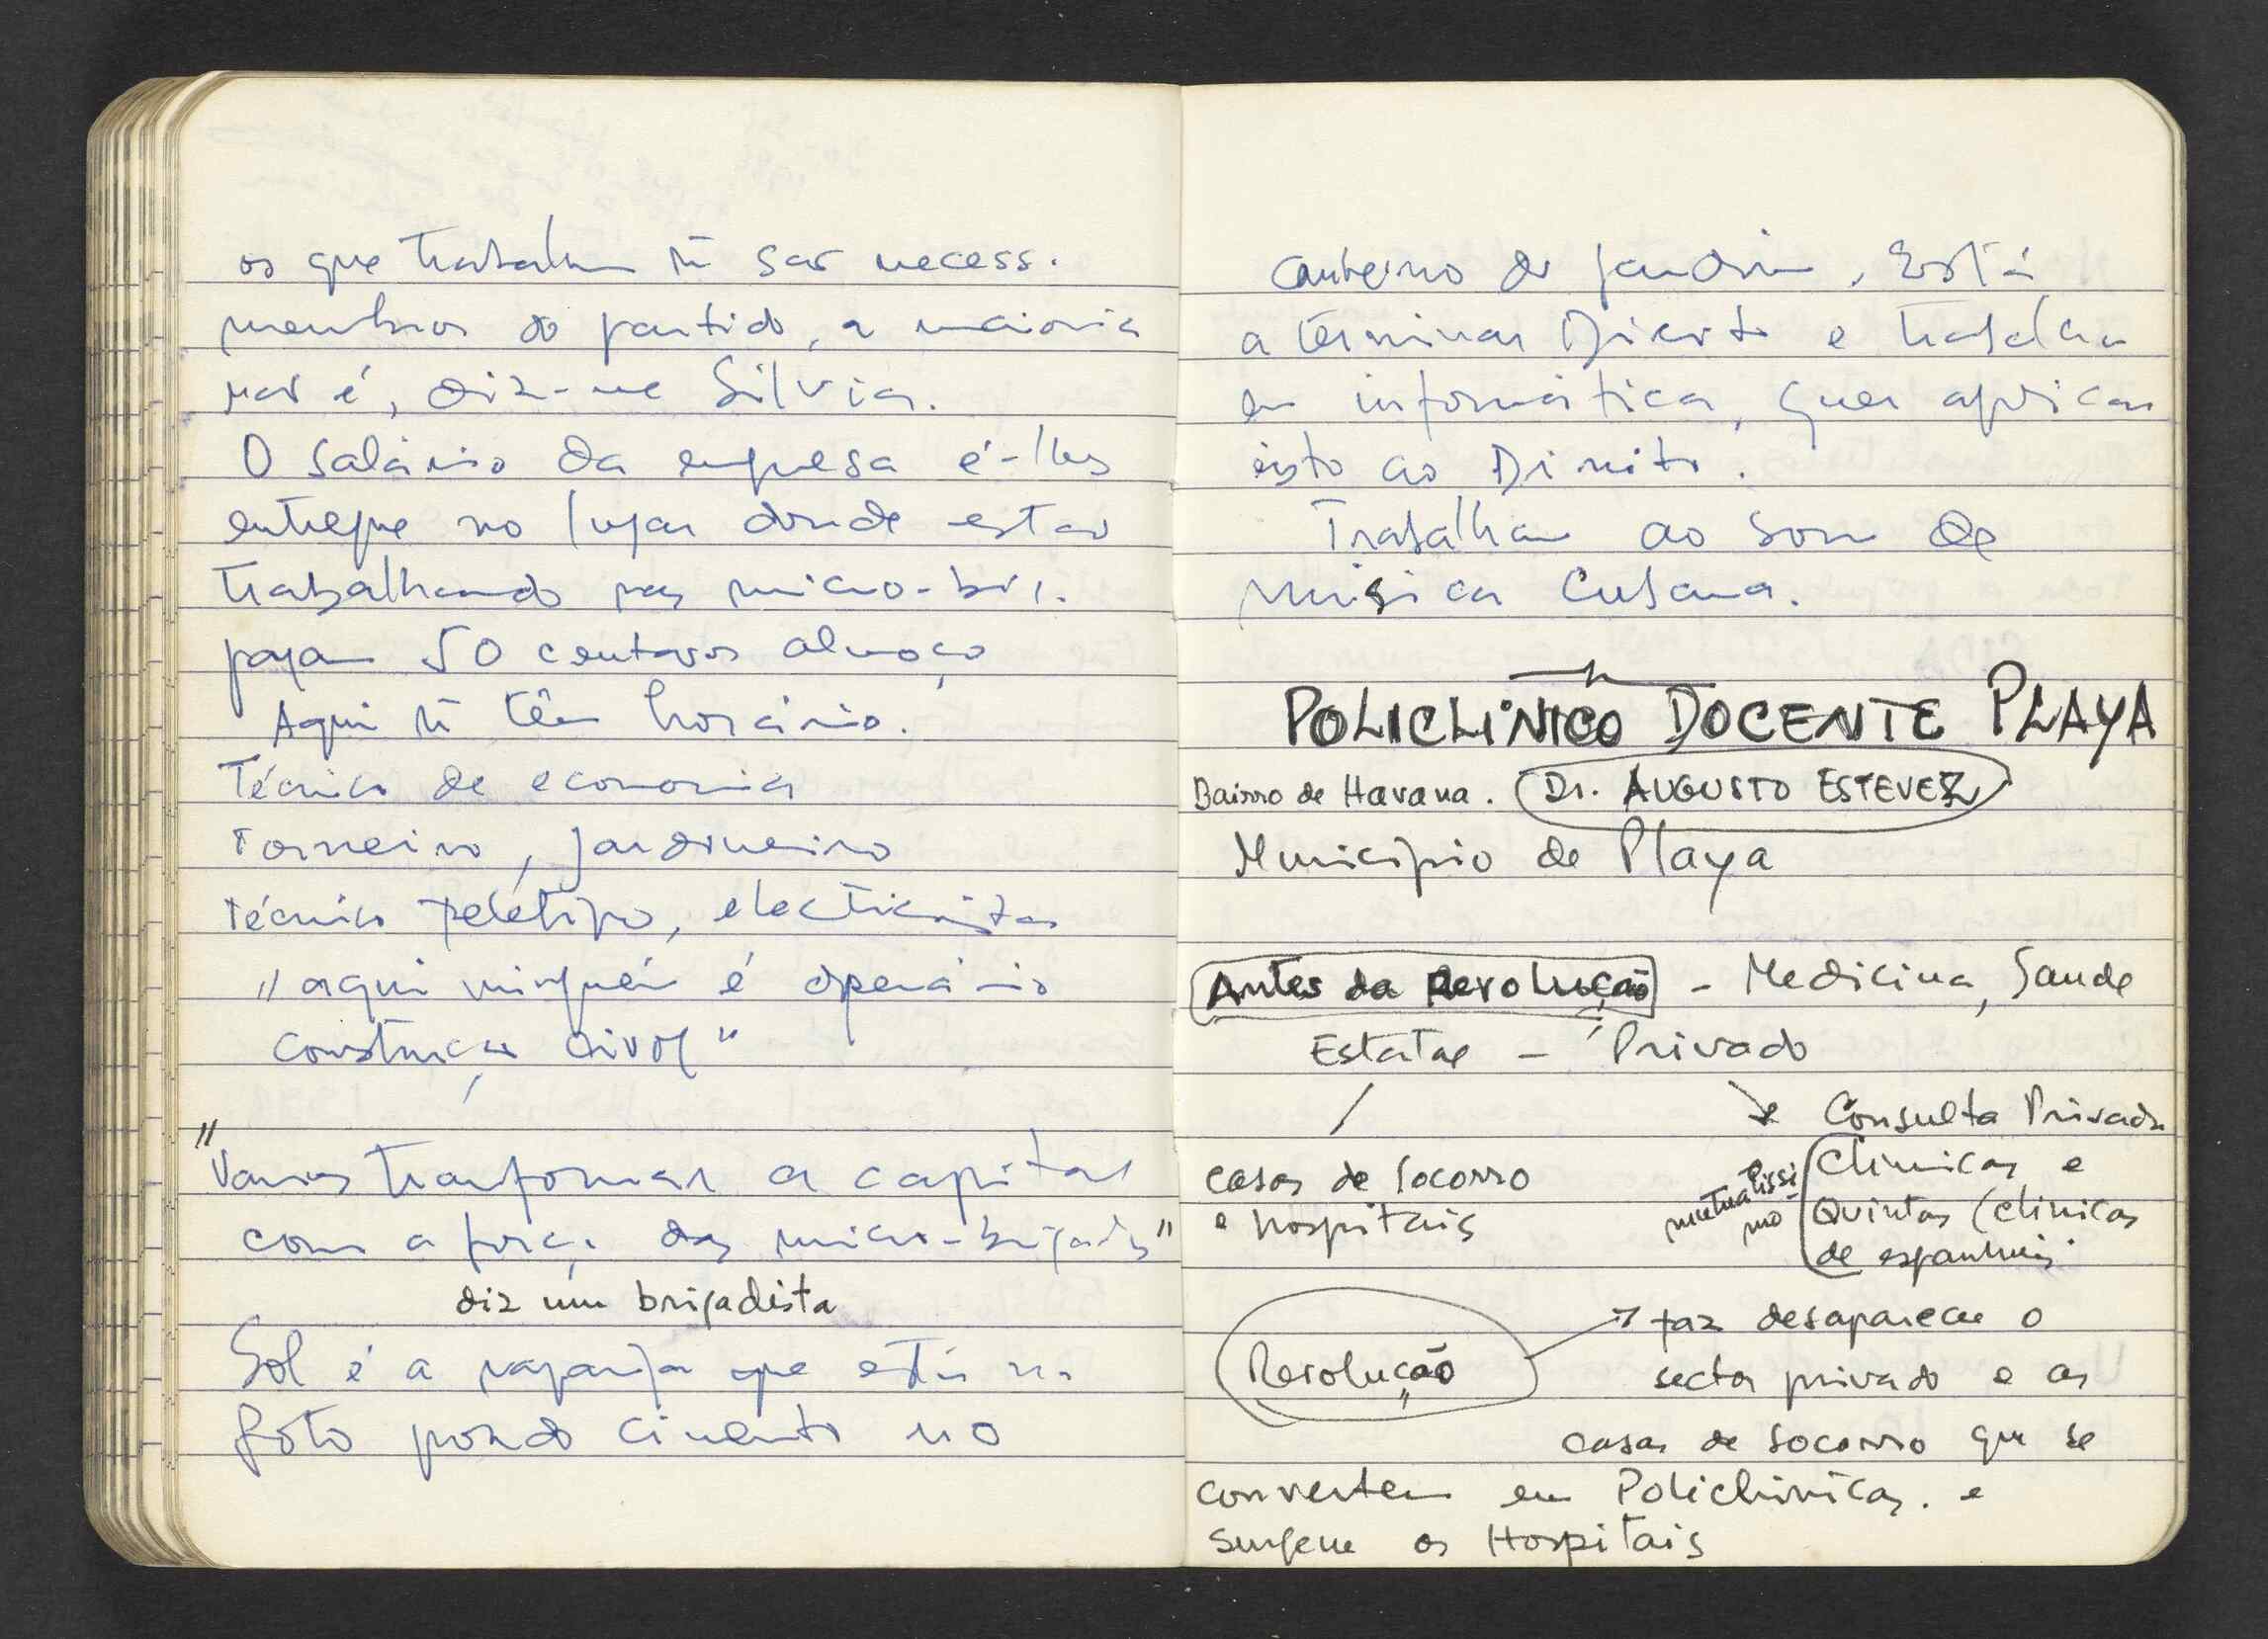 os que trabalham ñ são necess.
membros do partido, a maioria
não é, diz-me Silvia.
O salário da empresa é-lhes
entregue no lugar donde estão
trabalhando nas micro-bri.
pagam 50 centavos almoço
Aqui ñ têm horário.
Técnico de economia
Torneiro, jardineiro
técnico teletipo, electricista
"aqui ninguém é operário
construção civil"
"Vamos transformar a capital
com a força das micro-brigadas"
diz um brigadista
Sol é a rapariga que está na
foto pondo cimento no
canteiro do jardim. Está
a terminar Direito e trabalha
em informática, quer aplicar
isto ao Direito.
Trabalham ao som de
música Cubana.
POLICLÍNICO DOCENTE PLAYA
Bairro de Havana. Dr. AUGUSTO ESTEVEZ
Município de Playa
Antes da Revolução - Medicina, Saude
Estatal - Privado
Consulta Privada
casas de Socorro
e hospitais
mutualissi-
mo
Clinicas e
Quintas (clinicas
de espanhóis
Revolução
faz desaparecer o
sector privado e as
casas de socorro que se
convertem em Policlinicas. e
surgem os Hospitais